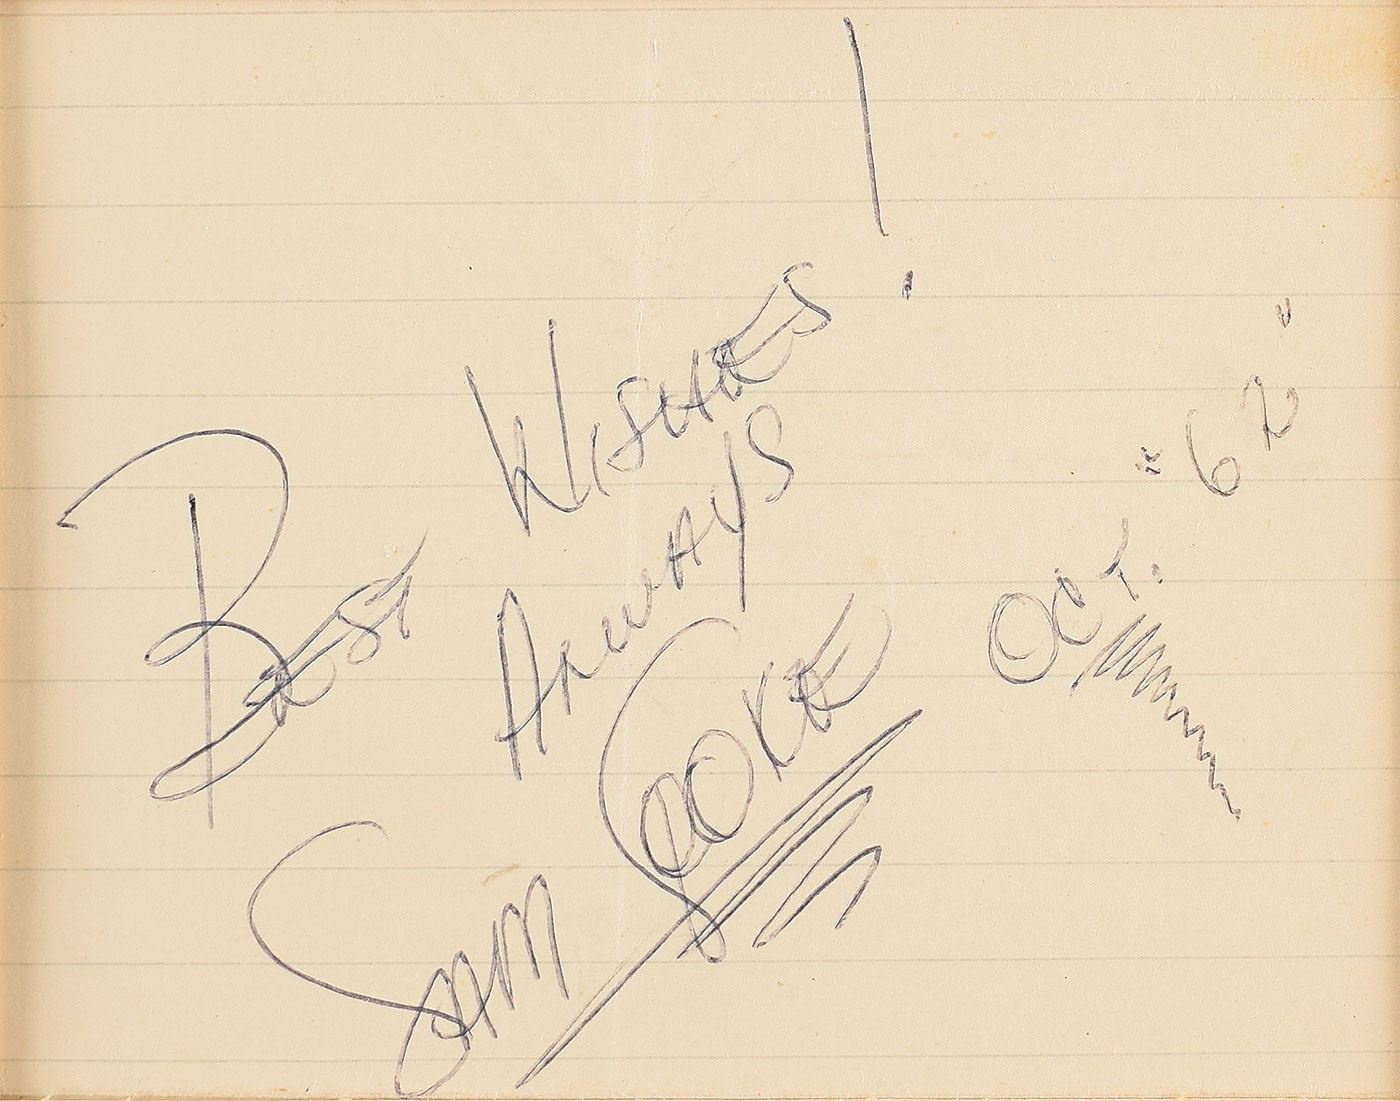 Best Wishes!
Always
Sam Cooke
Oct. "62"